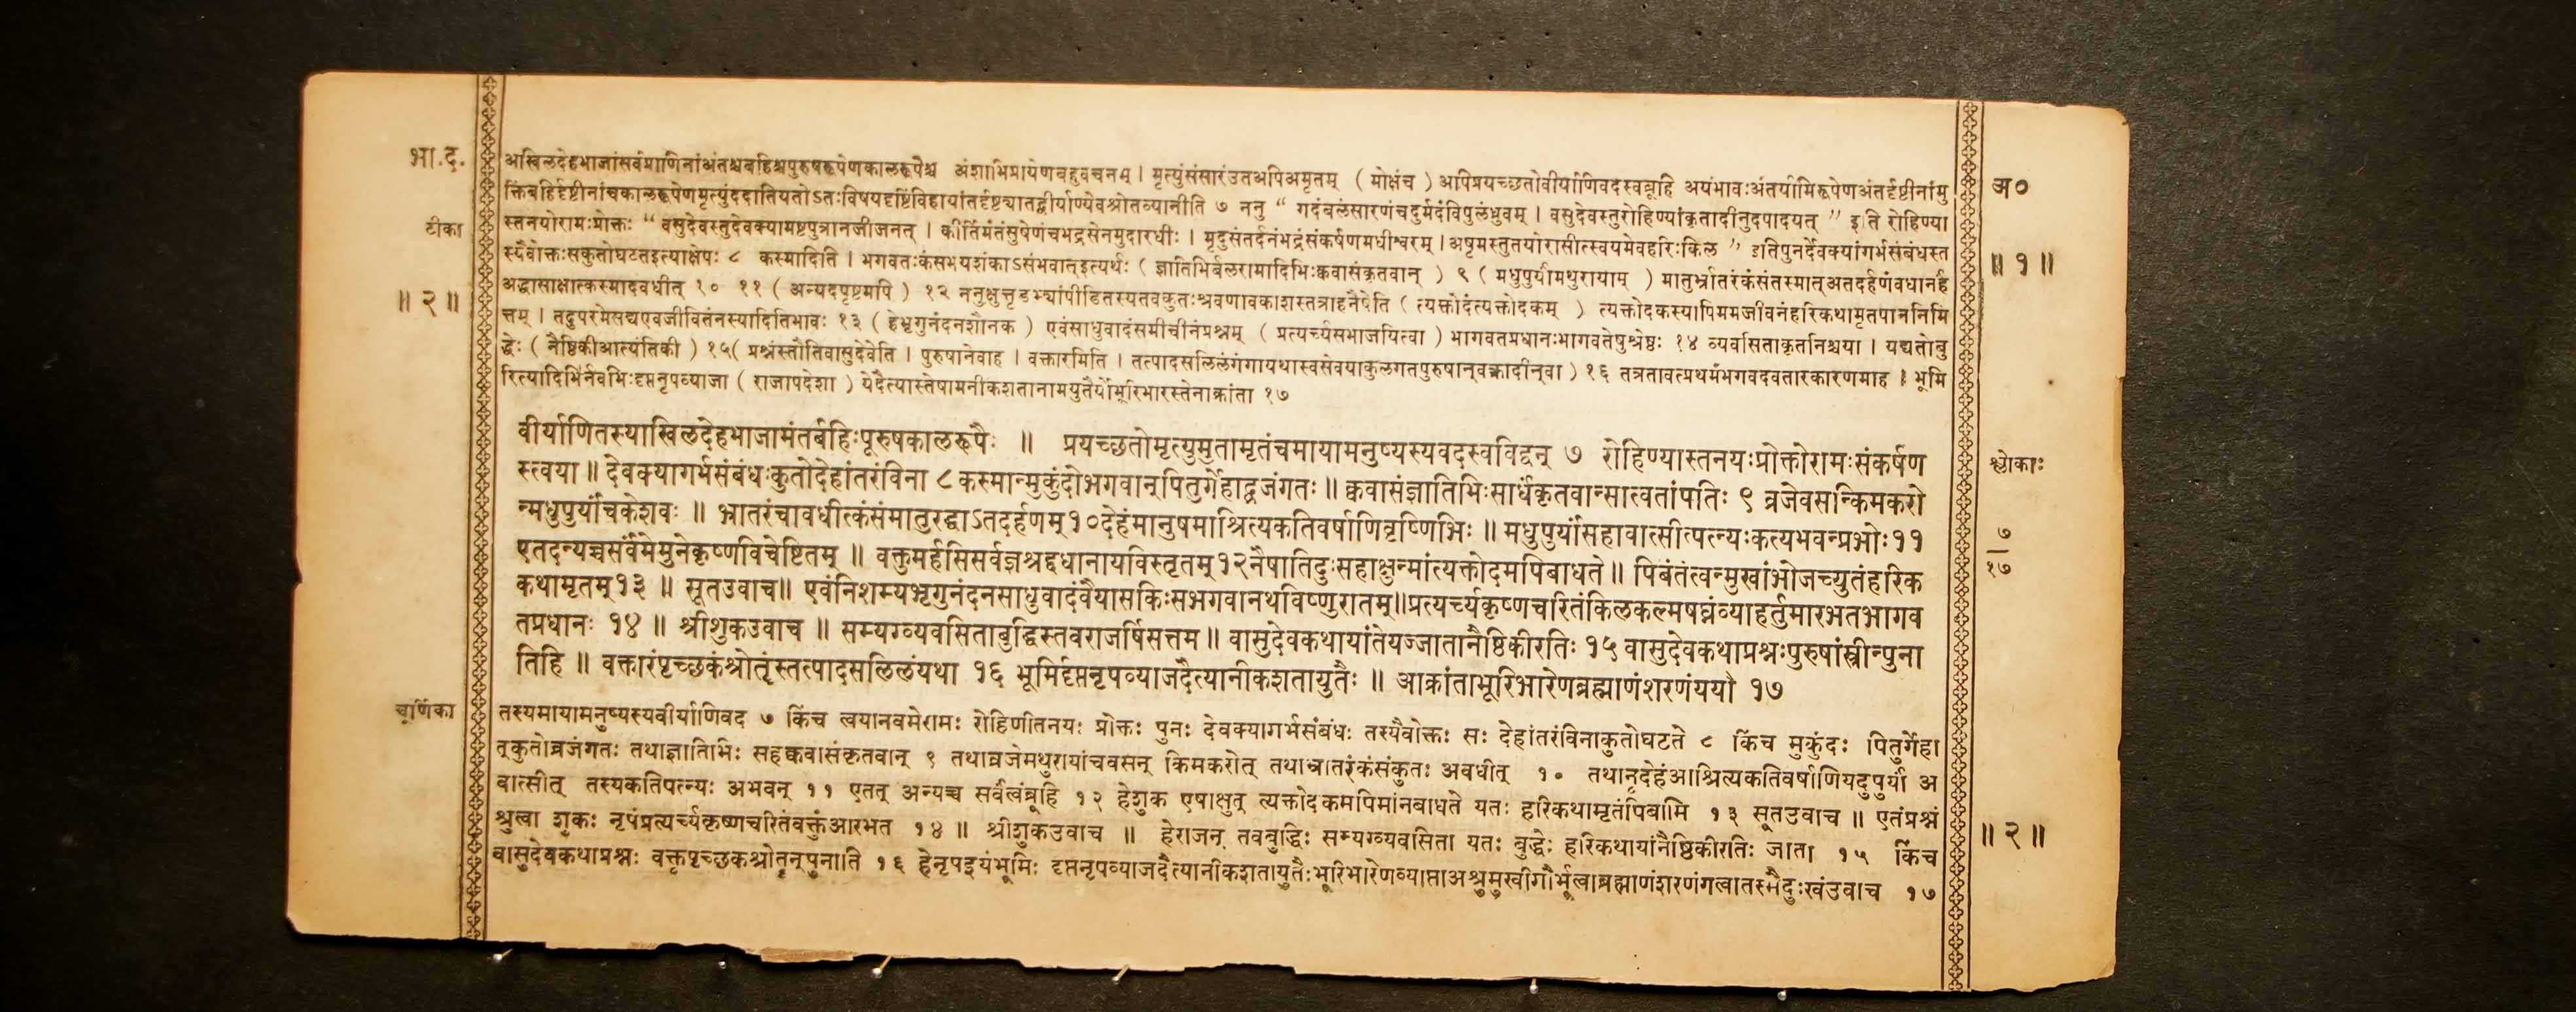 भा.द.
टीका
॥ २ ॥
अखिलदेहभाजांसर्वप्राणिनांअंतश्चबहिश्चपुरुषरूपेणकालरूपैश्च अंशाभिप्रायेणबहुवचनम् । मृत्युंसंसारंउतअपिअमृतम् ( मोक्षंच ) अपिप्रयच्छतोवीर्याणिवदस्वब्रूहि अयंभावःअंतर्यामिरूपेणअंतर्दृष्टीनांमु
क्तिंबहिर्दृष्टीनांचकालरूपेणमृत्युंददातियतोऽतःविषयदृष्टिंविहायांतर्दृष्ट्यातद्वीर्याण्येवश्रोतव्यानीति ७ ननु “ गदंबलंसारणंचदुर्मदंविपुलंध्रुवम् । वसुदेवस्तुरोहिण्यांकृतादीनुदपादयत् ” इति रोहिण्या
स्तनयोरामःप्रोक्तः “ वसुदेवस्तुदेवक्यामष्टपुत्रानजीजनत् । कीर्तिमंतंसुषेणंचभद्रसेनमुदारधीः । मृदुसंतर्दनंभद्रंसंकर्षणमधीश्वरम् । अष्टमस्तुतयोरासीत्स्वयमेवहरिःकिल ” इतिपुनर्देवक्यांगर्भसंबंधस्त
स्यैवोक्तःसकुतोघटतइत्याक्षेपः ८ कस्मादिति । भगवतःकंसभयशंकाऽसंभवात्इत्यर्थः ( ज्ञातिभिर्बलरामादिभिःक्ववासंकृतवान् ) ९ ( मधुपुर्यांमथुरायाम् ) मातुर्भ्रातरंकंसंतस्मात्अतदर्हणंवधानर्ह
अद्धासाक्षात्कस्मादवधीत् १० ११ ( अन्यदपृष्टमपि ) १२ ननुक्षुत्तृड्भ्यांपीडितस्यतवकुतःश्रवणावकाशस्तत्राहनैषेति ( त्यक्तोदंत्यक्तोदकम् ) त्यक्तोदकस्यापिममजीवनंहरिकथामृतपाननिमि
त्तम् । तदुपरमेसद्यएवजीवितंनस्यादितिभावः १३ ( हेभृगुनंदनशौनक ) एवंसाधुवादंसमीचीनंप्रश्नम् ( प्रत्यर्च्यसभाजयित्वा ) भागवतप्रधानःभागवतेषुश्रेष्ठः १४ व्यवसिताकृतनिश्चया । यद्यतोबु
द्धेः ( नैष्ठिकीआत्यंतिकी ) १५( प्रश्नंस्तौतिवासुदेवेति । पुरुषानेवाह । वक्तारमिति । तत्पादसलिलंगंगायथास्वसेवयाकुलगतपुरुषान्वक्रादीन्वा ) १६ तत्रतावत्प्रथमंभगवदवतारकारणमाह । भूमि
रित्यादिभिर्नवभिःदृप्तनृपव्याजा ( राजापदेशा ) येदैत्यास्तेषामनीकशतानामयुतैर्योभूरिभारस्तेनाक्रांता १७
वीर्याणितस्याखिलदेहभाजामंतर्बहिःपूरुषकालरूपैः ॥ प्रयच्छतोमृत्युमुतामृतंचमायामनुष्यस्यवदस्वविद्वन् ७ रोहिण्यास्तनयःप्रोक्तोरामःसंकर्षण
स्त्वया ॥ देवक्यागर्भसंबंधःकुतोदेहांतरंविना ८ कस्मान्मुकुंदोभगवान्पितुर्गेहाद्व्रजंगतः ॥ क्ववासंज्ञातिभिःसार्धंकृतवान्सात्वतांपतिः ९ व्रजेवसन्किमकरो
न्मधुपुर्यांचकेशवः ॥ भ्रातरंचावधीत्कंसंमातुरद्धाऽतदर्हणम्१०देहंमानुषमाश्रित्यकतिवर्षाणिवृष्णिभिः ॥ मधुपुर्यांसहावात्सीत्पत्न्यःकत्यभवन्प्रभोः११
एतदन्यच्चसर्वंमेमुनेकृष्णविचेष्टितम् ॥ वक्तुमर्हसिसर्वज्ञश्रद्दधानायविस्तृतम्१२नैषातिदुःसहाक्षुन्मांत्यक्तोदमपिबाधते ॥ पिबंतंत्वन्मुखांभोजच्युतंहरिक
कथामृतम्१३ ॥ सूतउवाच॥ एवंनिशम्यभृगुनंदनसाधुवादंवैयासकिःसभगवानथविष्णुरातम्॥प्रत्यर्च्यकृष्णचरितंकिलकल्मषघ्नंव्याहर्तुमारभतभागव
तप्रधानः १४ ॥ श्रीशुकउवाच ॥ सम्यग्व्यवसिताबुद्धिस्तवराजर्षिसत्तम ॥ वासुदेवकथायांतेयज्जातानैष्ठिकीरतिः १५ वासुदेवकथाप्रश्नःपुरुषांस्त्रीन्पुना
तिहि ॥ वक्तारंपृच्छकंश्रोतॄंस्तत्पादसलिलंयथा १६ भूमिर्दृप्तनृपव्याजदैत्यानीकशतायुतैः ॥ आक्रांताभूरिभारेणब्रह्माणंशरणंययौ १७
चूर्णिका
तस्यमायामनुष्यस्यवीर्याणिवद ७ किंच त्वयानवमेरामः रोहिणीतनयः प्रोक्तः पुनः देवक्यागर्भसंबंधः तस्यैवोक्तः सः देहांतरंविनाकुतोघटते ८ किंच मुकुंदः पितुर्गेहा
त्कुतोव्रजंगतः तथाज्ञातिभिः सहक्ववासंकृतवान् ९ तथाव्रजेमथुरायांचवसन् किमकरोत् तथाभ्रातरंकंसंकुतः अवधीत् १० तथानृदेहंआश्रित्यकतिवर्षाणियदुपुर्यां अ
वात्सीत् तस्यकतिपत्न्यः अभवन् ११ एतत् अन्यच्च सर्वंत्वंब्रूहि १२ हेशुक एषाक्षुत् त्यक्तोदकमपिमांनबाधते यतः हरिकथामृतंपिबामि १३ सूतउवाच ॥ एतंप्रश्नं
श्रुत्वा शुकः नृपंप्रत्यर्च्यकृष्णचरितंवक्तुंआरभत १४ ॥ श्रीशुकउवाच ॥ हेराजन् तवबुद्धिः सम्यग्व्यवसिता यतः बुद्धेः हरिकथायांनैष्ठिकीरतिः जाता १५ किंच
वासुदेवकथाप्रश्नः वक्तृपृच्छकश्रोतॄन्पुनाति १६ हेनृपइयंभूमिः दृप्तनृपव्याजदैत्यानीकशतायुतैःभूरिभारेणव्याप्ताअश्रुमुखीगौर्भूत्वाब्रह्माणंशरणंगत्वातस्मैदुःखंउवाच १७
अ०
॥ १ ॥
श्लोकाः
७
१७
॥ २ ॥